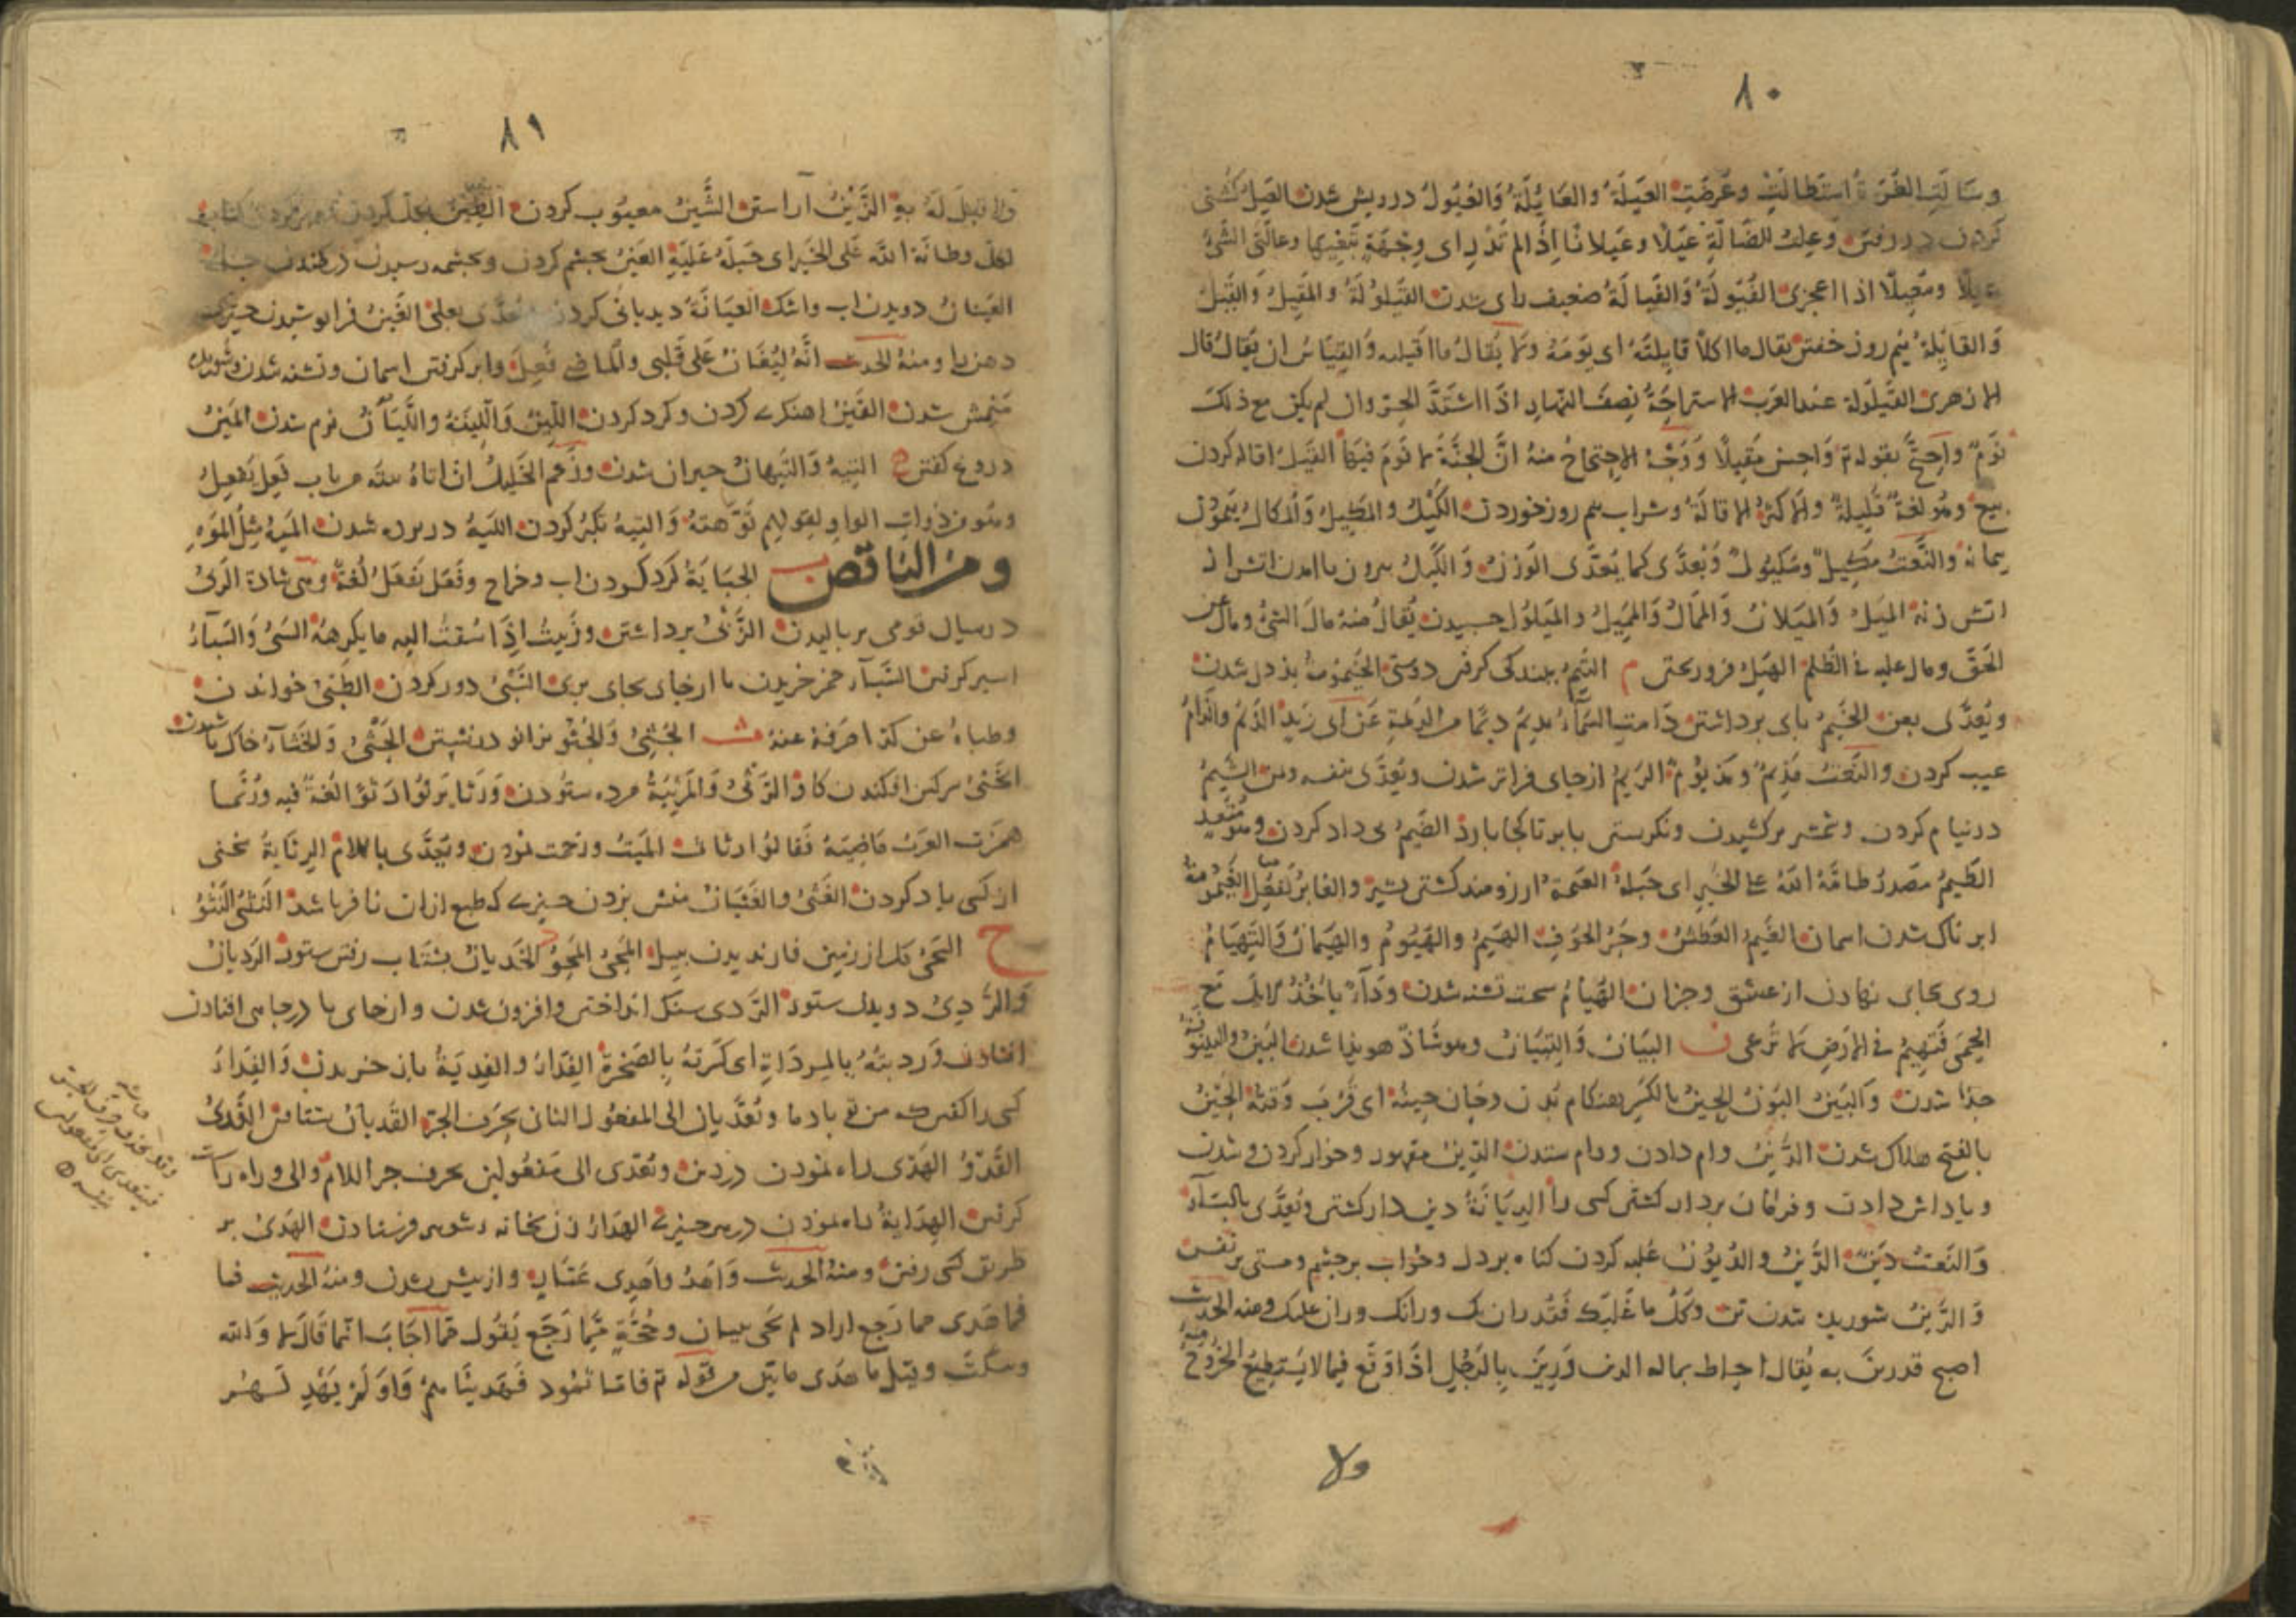 ٨٠
وسالت الغرة استطالت وعرضت العيلة والعايلة والعيول درويش شدن العيل كشتى
كردن در رفتن وعلت الضالة عيلا وعيلانا اذا لم تدر اى وجهة تبغيها وعالنى الشئ
عيلا ومعيلا اذا اعجزنى الفيولة والفيالة ضعيف راى شدن القيلولة والمقيل والقيل
والقايلة نيم روز خفتن يقال ما اكلأ قايلته اى نومه ولا يقال ما اقيله والقياس ان يقال قال
الازهرى القيلولة عند العرب الاستراحة نصف النهار اذا اشتد الحر وان لم يكن مع ذلك
نوم واحتج بقوله تع واحسن مقيلا ووجه الاحتجاج منه ان الجنة لا نوم فيها القيل اقاله كردن
بيع وهو لغة قليلة والاكثر الاقالة وشراب نيم روز خوردن الكيل والمكيل والمكال پيمودن
پيمانه والنعت مكيل ومكيول ويعدى كما يعدى الوزن والكيل بيرون نا امدن اتش از
اتش زنه الميل والميلان والممال والمميل والميلول چسبيدن يقال منه مال الشئ ومال عن
الحق ومال عليه فى الظلم الهيل فرو ريختن م التيم بنده كى كرفتن دوستى الخيمومة بددل شدن
ويعدى بعن الخيم پاى برداشتن دامت السماء تديم ديما من الديمة عن ابى زيد الذيم والذام
عيب كردن والنعت مذيم ومذيوم الريم ازجاى فراتر شدن ويعدى بنفسه ومن الشيم
در نيام كردن وشمشير بر كشيدن ونكرستن بابر تا كجا بارد الضيم بى داد كردن وهو متعد
الطيم مصدر طامه الله على الخير اى جبله العيمة ارزومند كشتن بشير والغابر يفعل الغيمومة
ابر ناك شدن اسمان الغيم العطش وحر الجوف الهيم والهيوم والهيمان والتهيام
روى بجاى نهادن از عشق وجز ان الهيام سخت تشنه شدن وداء ياخذ الابل مع
الحمى فتهيم فى الارض لا ترعى ن البيان والتبيان وهو شاذ هويدا شدن البين والبينونة
جدا شدن والبين البون الحين بالكسر بهنكام بدن وحان حينه اى قرب وقته الحين
بالفتح هلاك شدن الدين وام دادن ووام ستدن الدين مقهور وخوار كردن وشدن
وپاداش دادن وفرمان بردار كشتن كسى را الديانة دين دار كشتن ويعدى بالباء
والنعت دين الرين والريون غلبه كردن كناه بر دل وخواب بر چشم ومستى بر نفس
والرين شوريده شدن تن وكل ما غلبك فقد ران بك ورانك وران عليك ومنه الحديث
اصبح قد رين به يقال احاط بماله الدين ورين بالرجل اذا وقع فيما لا يستطيع الخروج منه
ولا
٨١
ولا قبل له به الزين آراستن الشين معيوب كردن الطين
لعل وطانه الله على الخير اى جبله عليه العين بچشم كردن وبچشمه رسيدن در كندن چاه
العينان دويدن اب واشك العيانة ديدبانى كردن ويعدى بعلى الغين فرا پوشيدن چيزى
دهن را ومنه الحديث انه ليغان على قلبى والماضى فعل وابر كرفتن اسمان وتشنه شدن وشوريده
منش شدن القين اهنكرى كردن وكرد كردن اللين واللينة والليان نرم شدن المين
دروغ كفتن ه التيه والتيهان حيران شدن وزعم الخليل ان اتاه يتيه من باب فعل يفعل
وهو من ذوات الواو لقولهم توهته والتيه تكبر كردن الليه در پرده شدن الميه مثل الموه
ومن الناقص ب الجباية كرد كردن اب وخراج وفعل يفعل لغة وهى شاذة الربى
در ميان قومى بر باليدن الزبى برداشتن وزبيت اذا سقت اليه ما يكرهه السبى والسباء
اسير كرفتن السباء خمر خريدن تا از جاى بجاى برى السبى دور كردن الطبى خواندن
وطباه عن كذا صرفه عنه ث الجثى والجثو بزانو در نشستن الحثى والحثاء خاك پاشيدن
الخثى سركين افكندن كاو الرثى والمرثية مرده ستودن ورثا يرثو ارثوا لغة فيه وربما
همزت العرب ماضيه فقالوا رثات الميت ورحمت نمودن ويعدى باللام الرثاية سخنى
از كسى ياد كردن الغثى والغثيان منش بزدن چيزى كه طبع ازان نافر باشد النثى النثو
ح السحى كل از زمين فا رنديدن ببيل المحى المحو الخديان بشتاب رفتن ستور الرديان
والردى دويدن ستور الردى سنك انداختن وافزون شدن واز جاى يا در چاهى افتادن
افتادن ورديته بالمرداة اى كسرته بالصخرة الفداء والفدية باز خريدن والفداء
كسى را كفتن كه من تو باد ما وتعديان الى المفعول الثانى بحرف الجر القديان شتافتن القدى
القدو الهدى راه نمودن در دين وتعدى الى مفعولين بحرف جر اللام والى وراه راست
كرفتن الهداية راه نمودن در هر چيزى الهداء زن بخانه شوهر فرستادن الهدى بر
طريق كسى رفتن ومنه الحديث واهدوا هدى عمار واز پيش شدن ومنه الحديث فما
فما هدى مما رجع اراد لم يجئ ببيان وحجة مما رجع يقول مما اجاب انما قال لا والله
وسكت وقيل ما هدى ما بين من قوله تع فاما ثمود فهديناهم واو لم يهد لهم